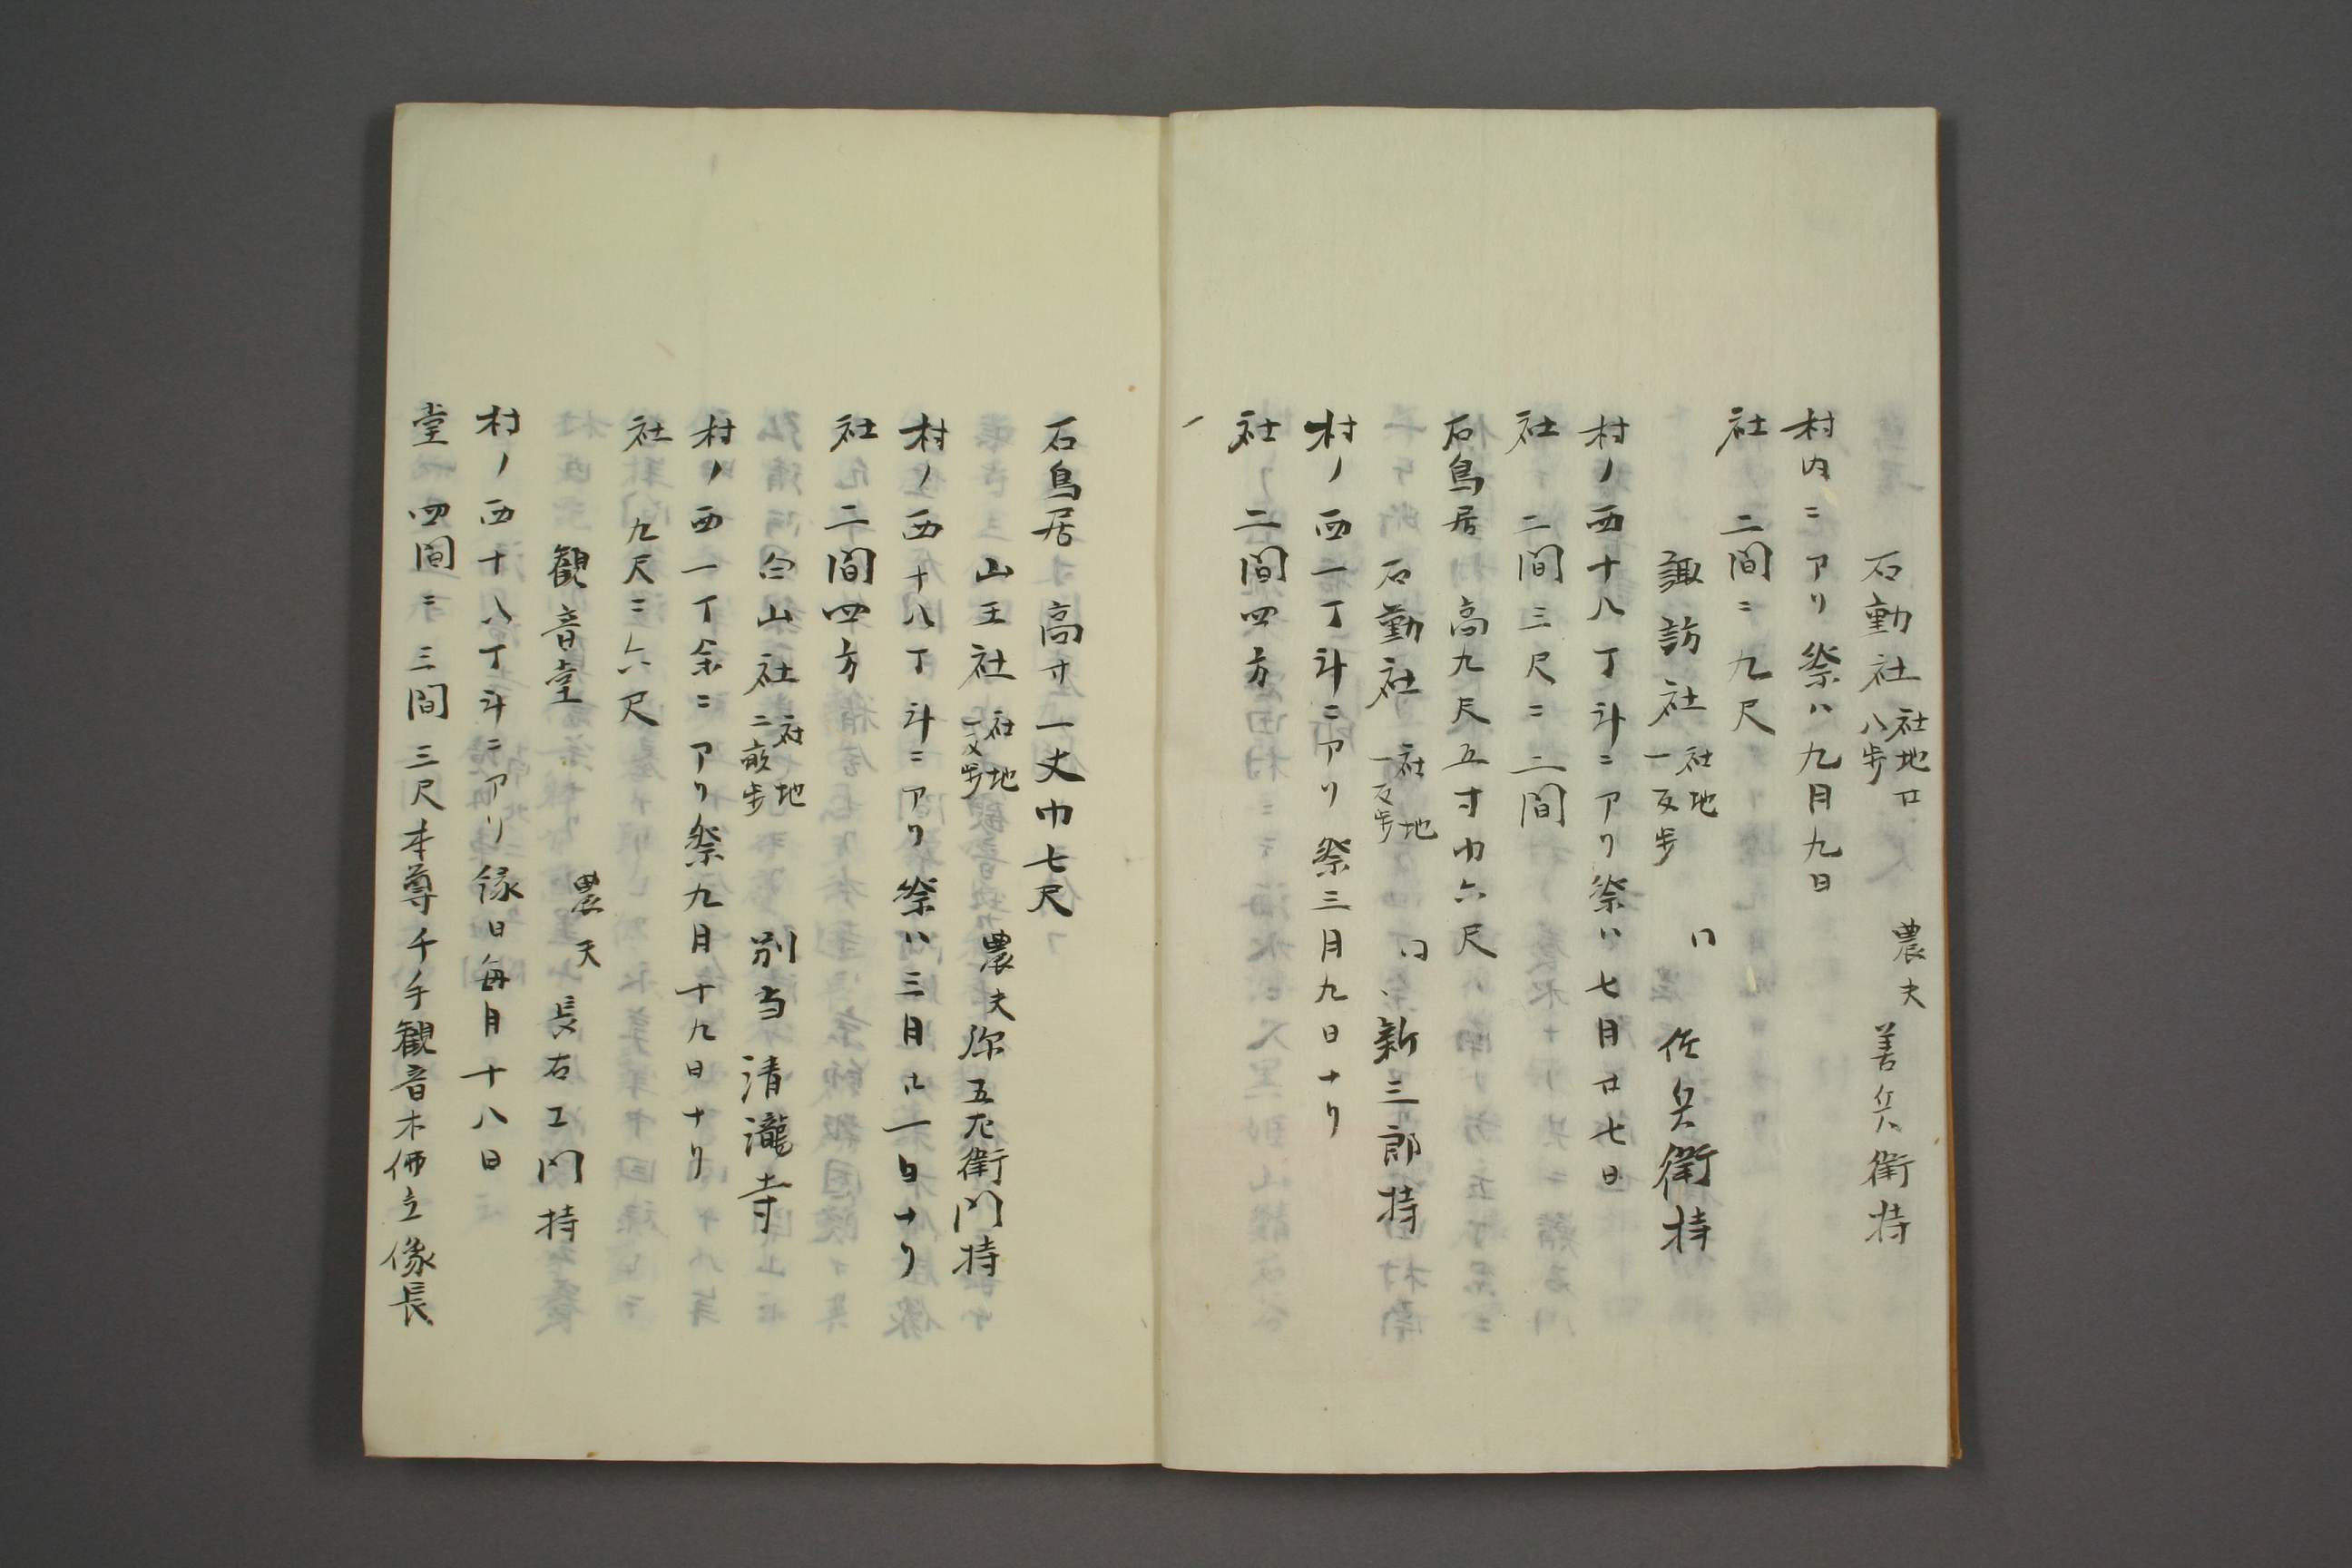 石動社 社地廿八歩 農夫 善兵衛持
村内ニアリ祭ハ九月九日
社 二間ニ九尺
諏訪社 社地一反歩 〃 佐兵衛持
村ノ西十八丁斗ニアリ祭ハ七月廿七日
社 二間三尺ニ二間
石鳥居 高九尺五寸巾六尺
石動社 社地一反歩 〃 新三郎持
村ノ西一丁斗ニアリ祭三月九日ナリ
社 二間四方
石鳥居 高サ一丈巾七尺
山王社 社地一反歩 農夫 弥五左衛門持
村ノ西十八丁斗ニアリ祭ハ三月廿一日ナリ
社 二間四方
白山社 社地二畝歩 別当 清瀧寺
村ノ西一丁余ニアリ祭九月十九日ナリ
社 九尺ニ六尺
観音堂 農夫 長右エ門持
村ノ西十八丁斗ニアリ縁日毎月十八日
堂 四間ニ三間三尺本尊千手観音木佛立像長